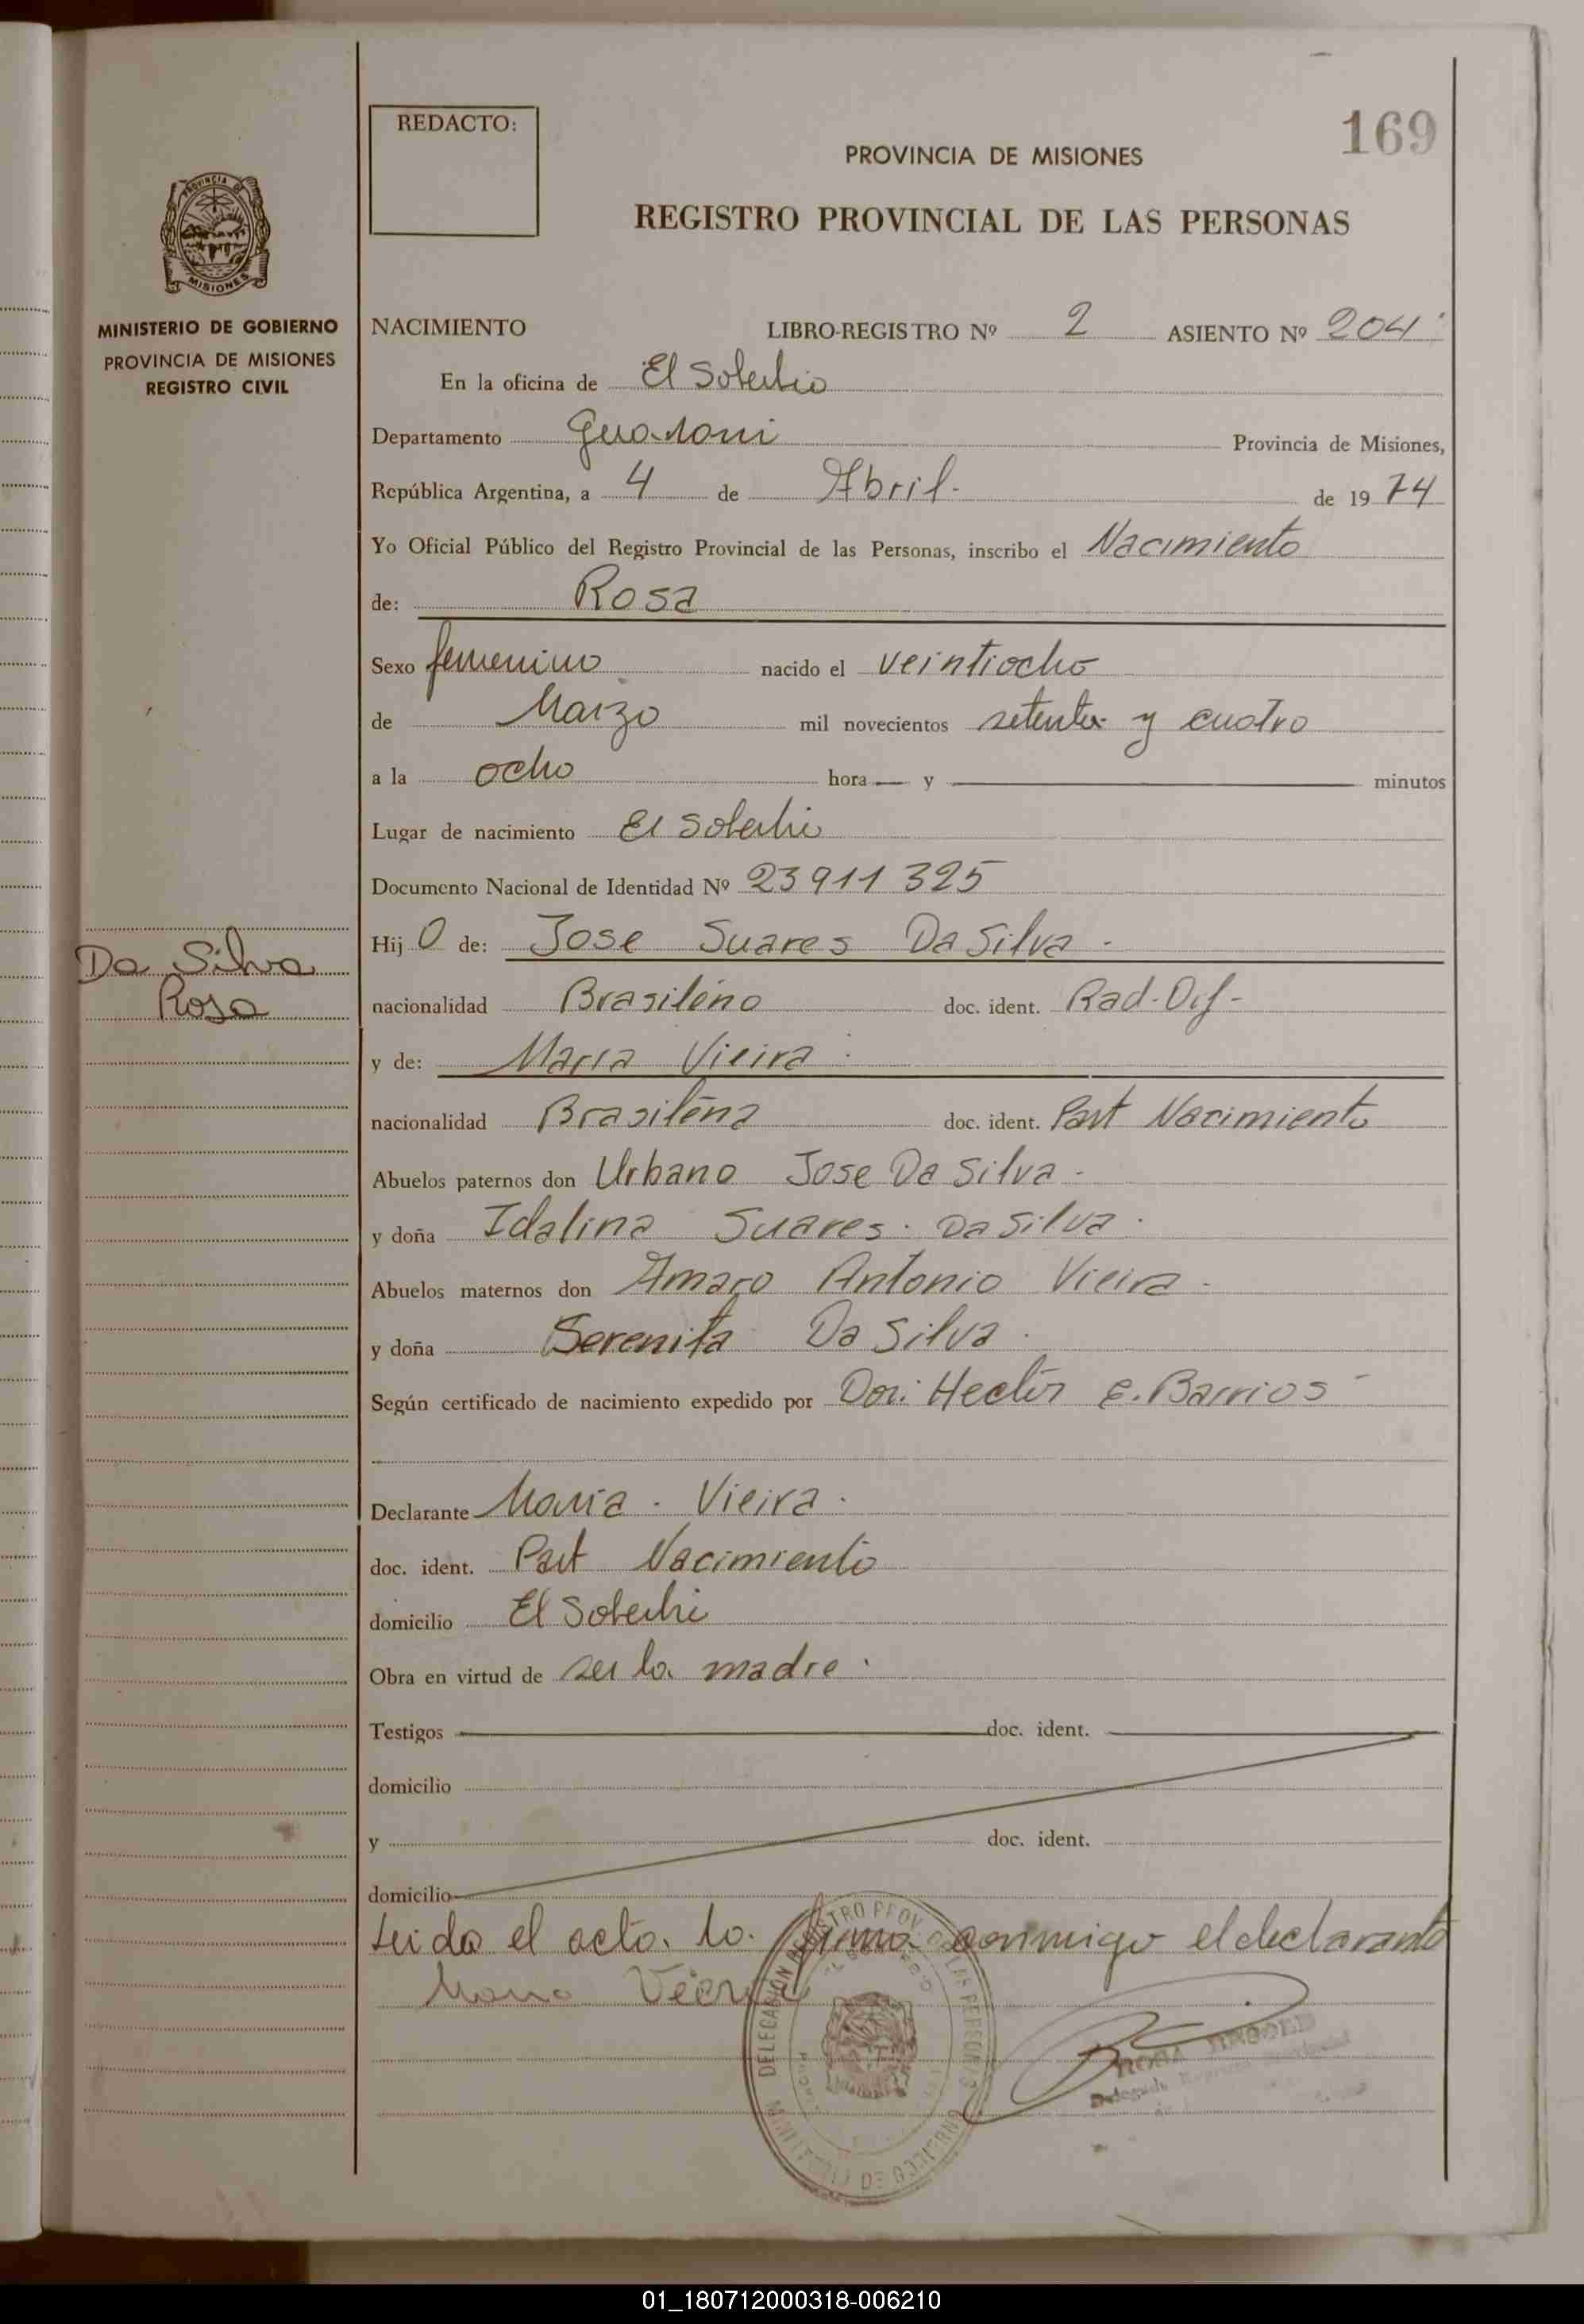 169
REDACTO:
PROVINCIA DE MISIONES
REGISTRO PROVINCIAL DE LAS PERSONAS
PROVINCIA DE
MISIONES
MINISTERIO DE GOBIERNO
PROVINCIA DE MISIONES
REGISTRO CIVIL
NACIMIENTO LIBRO-REGISTRO Nº 2 ASIENTO Nº 204
En la oficina de El Soberbio
Departamento Guaraní Provincia de Misiones,
República Argentina, a 4 de Abril. de 1974
Yo Oficial Público del Registro Provincial de las Personas, inscribo el Nacimiento
de: Rosa
Sexo femenino nacido el veintiocho
de Marzo mil novecientos setenta y cuatro
a la ocho hora — y — minutos
Lugar de nacimiento El Soberbio
Documento Nacional de Identidad Nº 23911325
Hij O de: Jose Suares Da Silva -
Da Silva
Rosa
nacionalidad Brasiléno doc. ident.
y de: Maria Vieira
nacionalidad Brasiléna doc. ident. Part Nacimiento
Abuelos paternos don Urbano Jose Da Silva -
y doña Idalina Suares Da Silva
Abuelos maternos don Amaro Antonio Vieira -
y doña Serenita Da Silva
Según certificado de nacimiento expedido por Hector E. Barrios
Declarante Maria Vieira
doc. ident. Part Nacimiento
domicilio El Soberbio
Obra en virtud de ser la madre
Testigos doc. ident.
domicilio
y doc. ident.
domicilio
Leida el acta, la firma conmigo el declarante
Maria
DELEGACIÓN REGISTRO PROV. DE LAS PERSONAS
MINISTERIO DE GOBIERNO
01_180712000318-006210